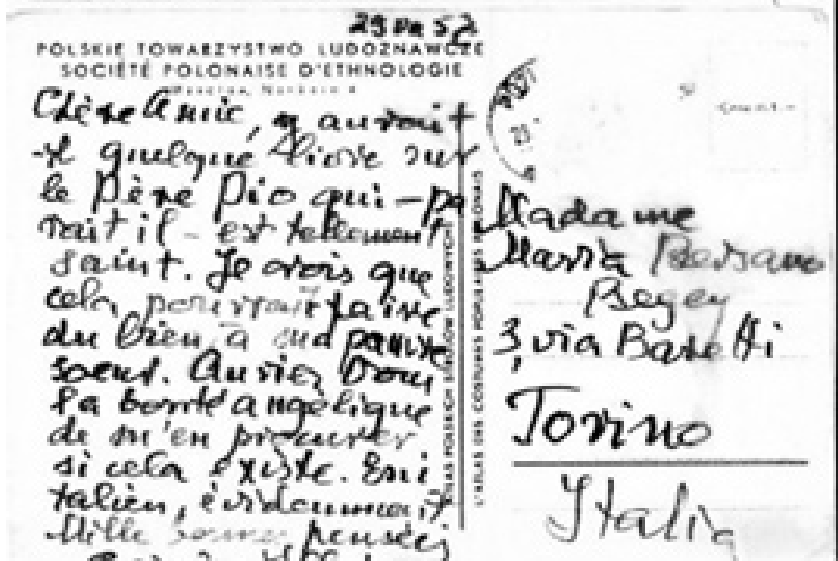 29 VII 57
POLSKIE TOWARZYSTWO LUDOZNAWCZE
SOCIÉTÉ POLONAISE D'ETHNOLOGIE
Chère Amie, y aurait
-il quelque chose sur
le Père Pio qui-pa
rait il - est tellement
saint. Je crois que
cela pourrait faire
du bien à ma pauvre
soeur. Auriez vous
la bonté angélique
de m'en procurer
si cela existe. En i
talien, évidemment
Mille bonnes pensées
ATLAS POLSKICH STROJÓW LUDOWYCH
L'ATLAS DES COSTUMES POPULAIRES POLONAIS
Madame
Maria Bersano
Begey
3, via Baretti
Torino
Italia